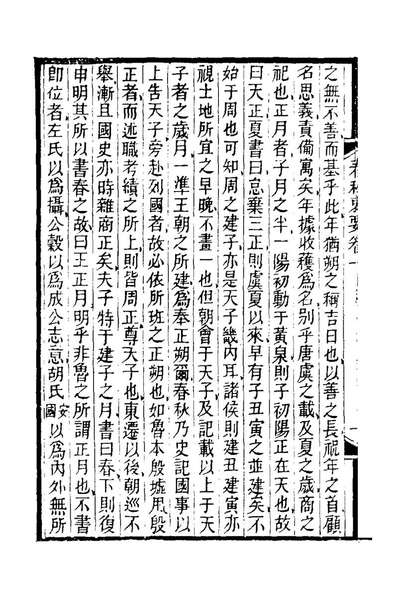 之無不善而基乎此年猶朔之稱吉日也以善之長祝年之首顧
名思義責備寓矣年據收穫爲名别乎唐虞之載及夏之歲商之
祀也正月者子月之半一陽初動于黃泉則子初陽正在天也故
曰天正夏書曰怠棄三正則虞夏以來早有子丑寅之並建矣不
始于周也可知周之建子亦是天子畿內耳諸侯則建丑建寅亦
視土地所宜之早晚不畫一也但朝會于天子及記載以上于天
子者之歲月一準王朝之所建爲奉正朔爾春秋乃史記國事以
上告天子旁赴列國者故必依所班之正朔也如魯本殷墟用殷
正者而述職考績之所上則皆周正尊天子也東遷以後朝巡不
舉漸且國史亦時雜商正矣夫子特于建子之月書曰春下則復
申明其所以書春之故曰王正月明乎非魯之所謂正月也不書
卽位者左氏以爲攝公穀以爲成公志意胡氏安國以爲內外無所
春秋
要卷一